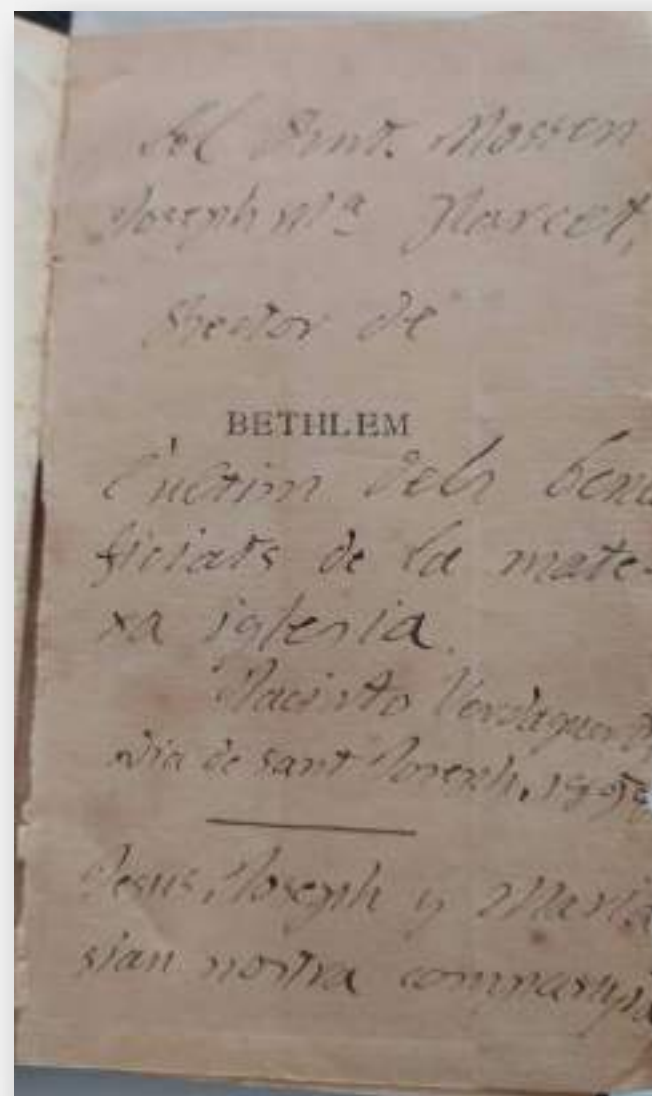 Al Rnt. Mossen
Joseph Mª Marcet,
Rector de
BETHLEM
l'últim dels bene
ficiats de la mate-
xa iglesia.
Jacinto Verdaguer
dia de sant Joseph,
Jesus, Joseph y Maria
sian nostra companyia